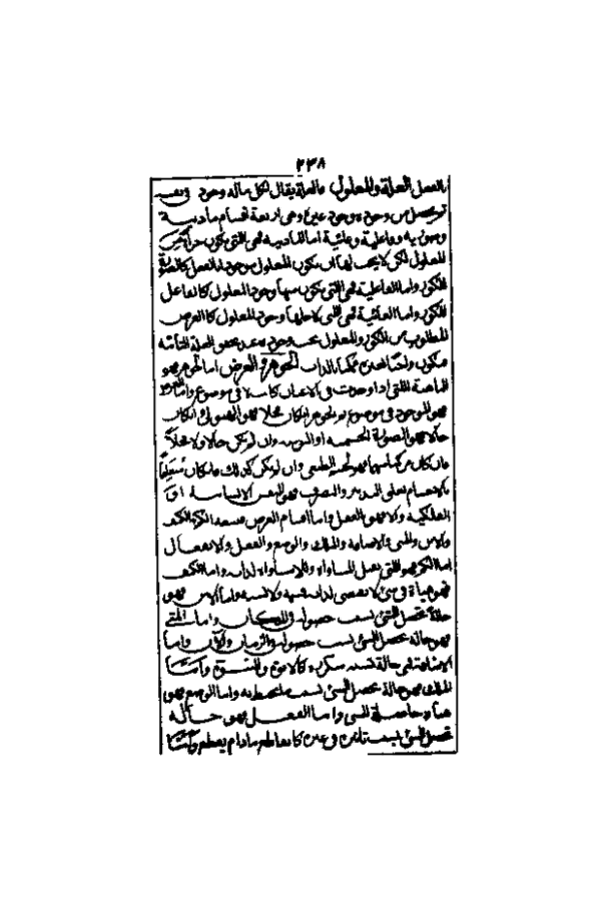 ٢٣٨
العلة والمعلول والعلة يقال لكل ماله وجود في نفسه
ثم يحصل من وجوده وجود غيره وهي اربعة اقسام مادية
وصورية وفاعلية وغائية اما المادية فهي التي يكون جزأ من
المعلول لكن لا يجب لها ان يكون المعلول موجودا بالفعل
للكوز واما الفاعلية فهي التي يكون منها وجود المعلول كالفاعل
للكوز واما الغائية فهي التي لاجلها وجود المعلول كالغرض
المطلوب من الكوز والمعلول يجب وجوده عند تحقق العلة التامة
فيكون بالذات الجوهر والعرض اما الجوهر فهو
الماهية التي اذا وجدت في الاعيان كانت لا في موضوع واما العرض
فهو الموجود في موضوع ثم الجوهر ان كان محلا فهو الهيولى وان كان
حالا فهو الصورة الجسمية او النوعية وان لم يكن حالا ولا محلا
فان كان مركبا منهما فهو الجسم الطبيعي وان لم يكن كذلك فان كان متعلقا
بالاجسام تعلق التدبير والتصرف فهو النفس الانسانية او
الفلكية والا فهو العقل واما اقسام العرض فتسعة الكم والكيف
والاين والمتى والاضافة والملك والوضع والفعل والانفعال
اما الكم فهو الذي يقبل المساواة واللامساواة لذاته واما الكيف
فهو هيأة في شئ لا يقتضي لذاته قسمة ولا نسبة واما الاين فهو
حالة تحصل للشئ بسبب حصوله في المكان واما المتى
فهو حالة تحصل للشئ بسبب حصوله في الزمان والآن واما
الاضافة فهي حالة نسبية متكررة كالابوة والبنوة واما
الملك فهو حالة تحصل للشئ بسبب ما يحيط به واما الوضع فهو
هيأة حاصلة للشئ واما الفعل فهو حالة
تحصل للشئ بسبب تاثيره في غيره كالقاطع مادام يقطع واما